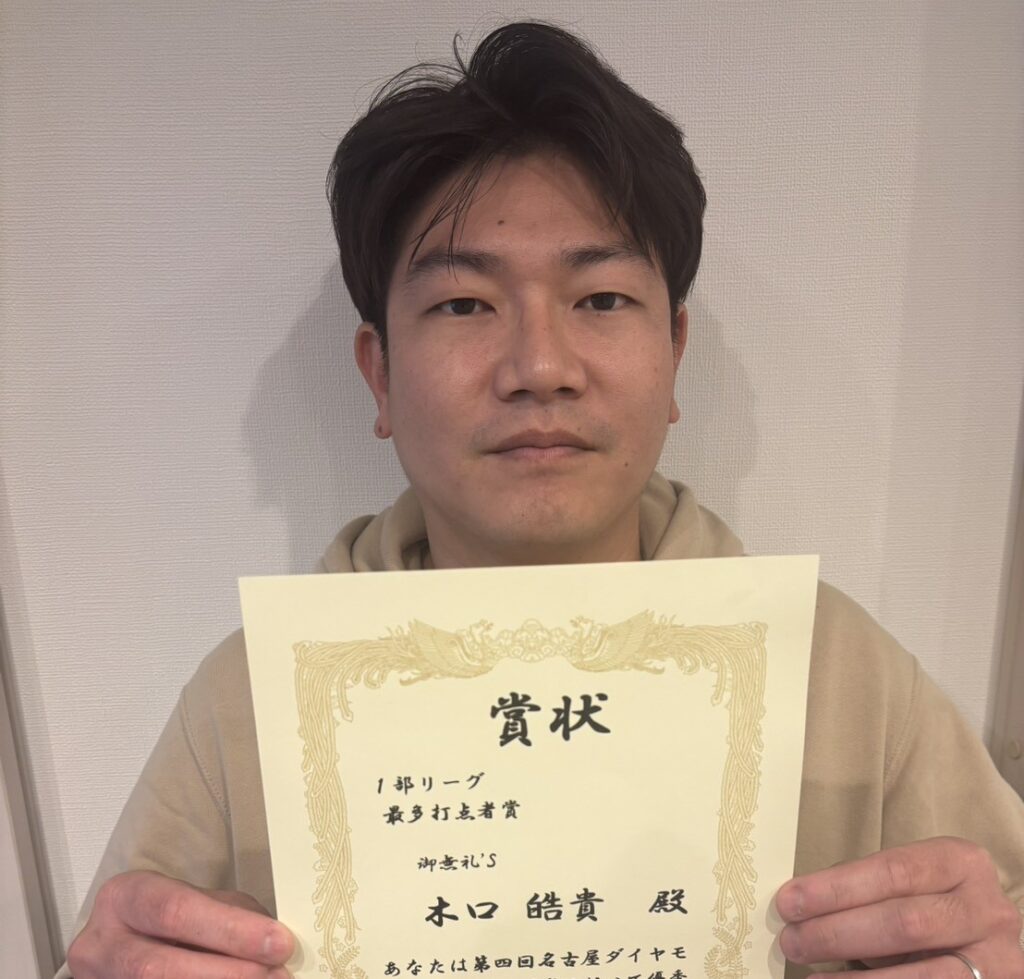 賞状
1部リーグ
最多打点者賞
御無礼'S
木口 皓貴 殿
あなたは第四回名古屋ダイヤモ